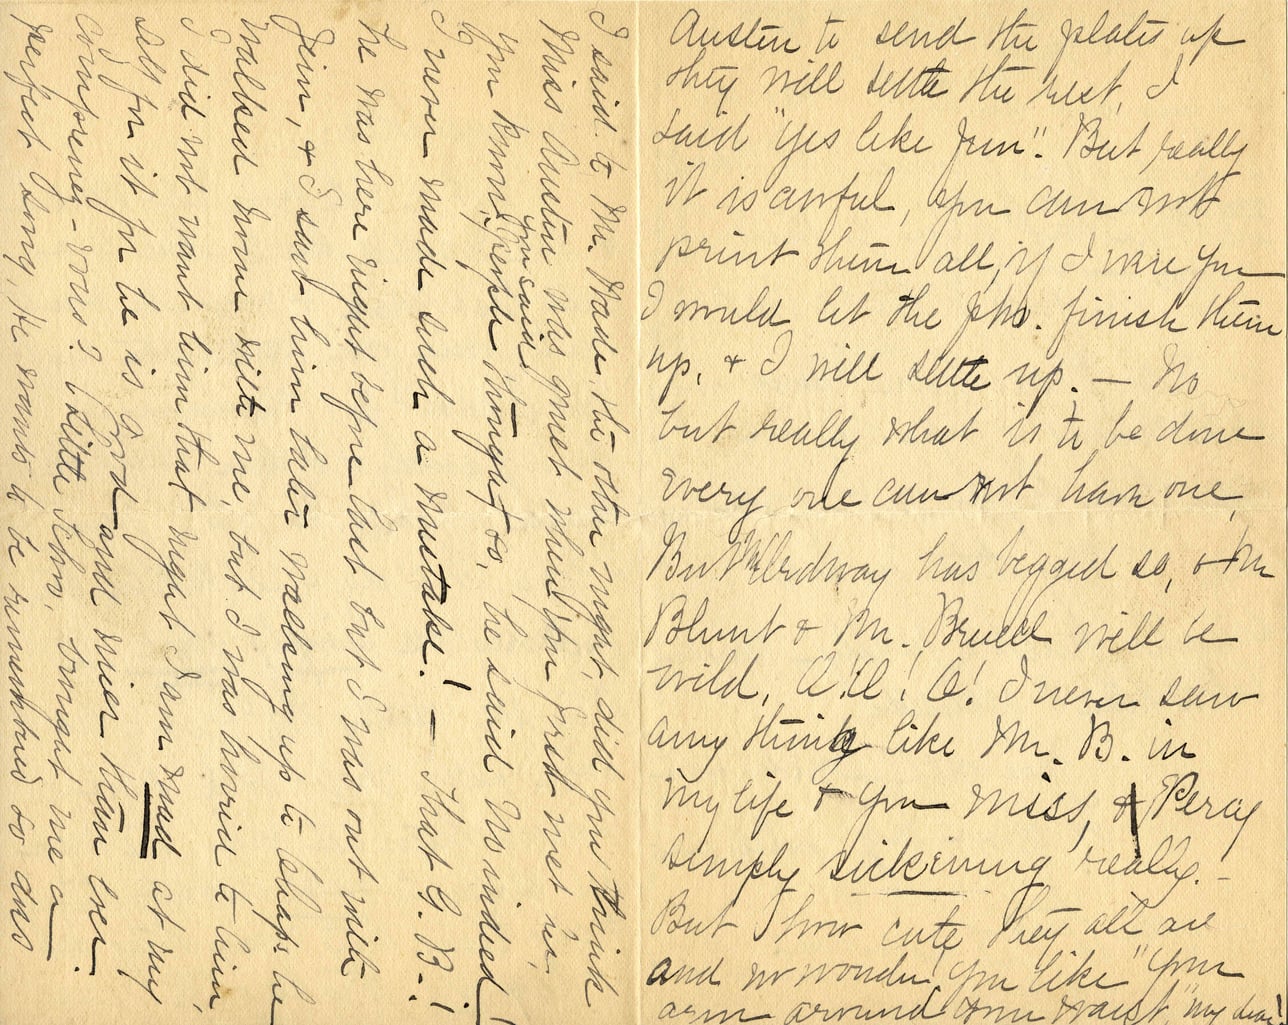 Austin to send the plates up
they will settle the rest, I
said "yes like fun". But really
it is awful, you can not
print them all, if I were you
I would let the pho. finish them
up, & I will settle up. — No
but really what is to be done
every one can not have one,
But Mr Ordway has begged so, & Mr
Blunt & Mr. Bruell will be
wild, O! O! O! I never saw
any thing like Mr. B. in
my life & you miss, & Percy
simply sickening really. —
But I how cute they all are
and no wonder you like "your
arm around the waist, "my dear!
I said to Mr. Wade, the other night, did you think
Miss Austin was quiet when you first met her,
You know, you said people thought so, he said No indeed!
I never made such a mistake! — That G. B.!
he was here night before last but I was out with
Jein, & I saw him later walking up to chaps. he
walked home with me, but I was horrid to him,
I did not want him that night I am mad at my
self for it for he is good and nicer than ever.
Comprenez-vous? Little Scho. brought me a
perfect song, He wants to be remembered so does